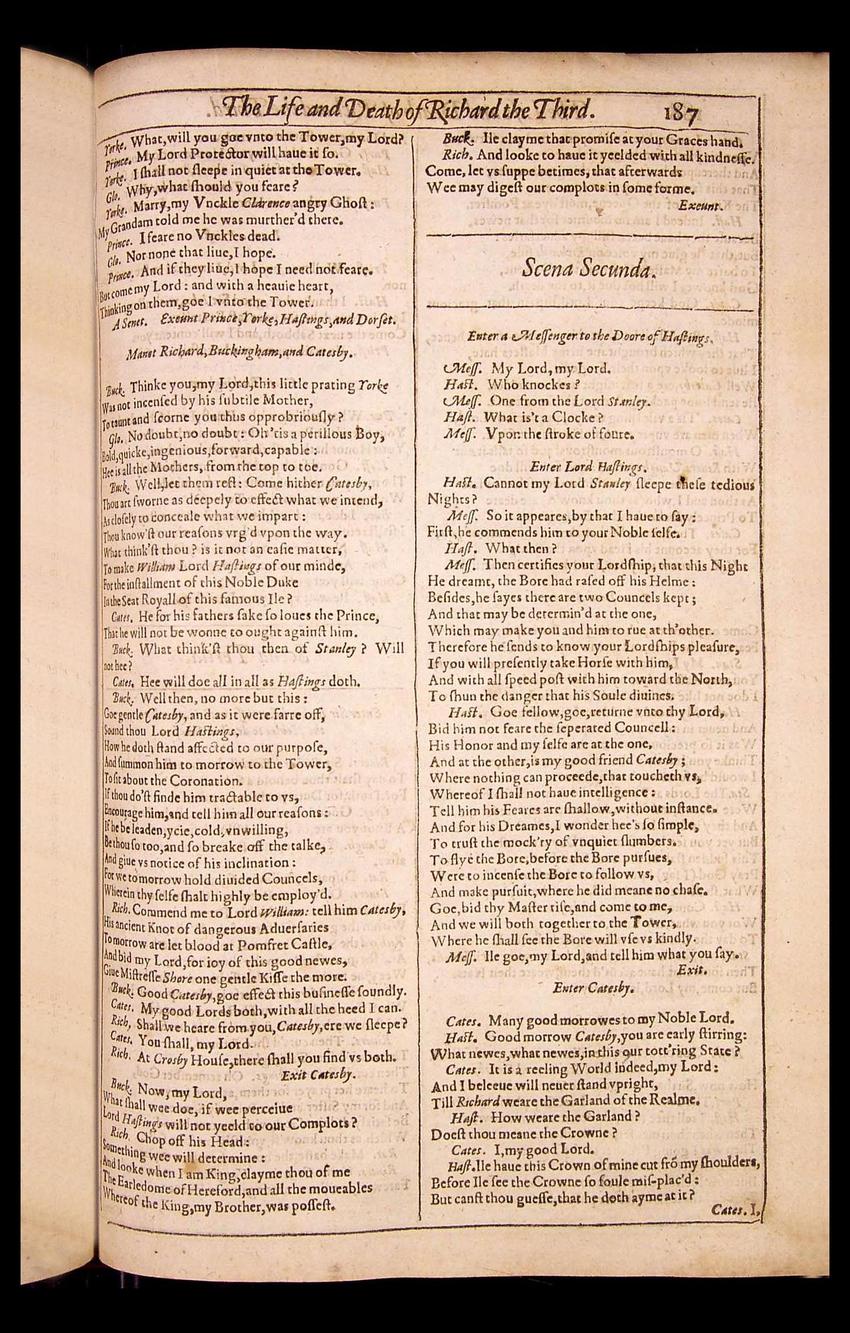 The Life and Death of Richard the Third. 187
Yorke. What, will you goe vnto the Tower, my Lord?
Prince. My Lord Protector will haue it so.
Yorke. I shall not sleepe in quiet at the Tower.
Glo. Why, what should you feare?
Yorke. Marry, my Vnckle Clarence angry Ghost:
My Grandam told me he was murther'd there.
Prince. I feare no Vnckles dead.
Glo. Nor none that liue, I hope.
Prince. And if they liue, I hope I need not feare.
But come my Lord: and with a heauie heart,
Thinking on them, goe I vnto the Tower.
A Senet. Exeunt Prince, Yorke, Hastings, and Dorset.
Manet Richard, Buckingham, and Catesby.
Buck. Thinke you, my Lord, this little prating Yorke
Was not incensed by his subtile Mother,
To taunt and scorne you thus opprobriously?
Glo. No doubt, no doubt: Oh 'tis a perillous Boy,
Bold, quicke, ingenious, forward, capable:
Hee is all the Mothers, from the top to toe.
Buck. Well, let them rest: Come hither Catesby,
Thou art sworne as deepely to effect what we intend,
As closely to conceale what we impart:
Thou know'st our reasons vrg'd vpon the way.
What think'st thou? is it not an easie matter,
To make William Lord Hastings of our minde,
For the installment of this Noble Duke
In the Seat Royall of this famous Ile?
Cates. He for his fathers sake so loues the Prince,
That he will not be wonne to ought against him.
Buck. What think'st thou then of Stanley? Will
not hee?
Cates. Hee will doe all in all as Hastings doth.
Buck. Well then, no more but this:
Goe gentle Catesby, and as it were farre off,
Sound thou Lord Hastings,
How he doth stand affected to our purpose,
And summon him to morrow to the Tower,
To sit about the Coronation.
If thou do'st finde him tractable to vs,
Encourage him, and tell him all our reasons:
If he be leaden, ycie, cold, vnwilling,
Be thou so too, and so breake off the talke,
And giue vs notice of his inclination:
For we to morrow hold diuided Councels,
Wherein thy selfe shalt highly be employ'd.
Rich. Commend me to Lord William: tell him Catesby,
His ancient Knot of dangerous Aduersaries
To morrow are let blood at Pomfret Castle,
And bid my Lord, for ioy of this good newes,
Giue Mistresse Shore one gentle Kisse the more.
Buck. Good Catesby, goe effect this businesse soundly.
Cates. My good Lords both, with all the heed I can.
Rich. Shall we heare from you, Catesby, ere we sleepe?
Cates. You shall, my Lord.
Rich. At Crosby House, there shall you find vs both.
Exit Catesby.
Buck. Now, my Lord,
What shall wee doe, if wee perceiue
Lord Hastings will not yeeld to our Complots?
Rich. Chop off his Head:
Something wee will determine:
And looke when I am King, clayme thou of me
The Earledome of Hereford, and all the moueables
Whereof the King, my Brother, was possest.
Buck. Ile clayme that promise at your Graces hand.
Rich. And looke to haue it yeelded with all kindnesse.
Come, let vs suppe betimes, that afterwards
Wee may digest our complots in some forme.
Exeunt.
Scena Secunda.
Enter a Messenger to the Doore of Hastings.
Mess. My Lord, my Lord.
Hast. Who knockes?
Mess. One from the Lord Stanley.
Hast. What is't a Clocke?
Mess. Vpon the stroke of foure.
Enter Lord Hastings.
Hast. Cannot my Lord Stanley sleepe these tedious
Nights?
Mess. So it appeares, by that I haue to say:
First, he commends him to your Noble selfe.
Hast. What then?
Mess. Then certifies your Lordship, that this Night
He dreamt, the Bore had rased off his Helme:
Besides, he sayes there are two Councels kept;
And that may be determin'd at the one,
Which may make you and him to rue at th'other.
Therefore he sends to know your Lordships pleasure,
If you will presently take Horse with him,
And with all speed post with him toward the North,
To shun the danger that his Soule diuines.
Hast. Goe fellow, goe, returne vnto thy Lord,
Bid him not feare the seperated Councell:
His Honor and my selfe are at the one,
And at the other, is my good friend Catesby;
Where nothing can proceede, that toucheth vs,
Whereof I shall not haue intelligence:
Tell him his Feares are shallow, without instance.
And for his Dreames, I wonder hee's so simple,
To trust the mock'ry of vnquiet slumbers.
To flye the Bore, before the Bore pursues,
Were to incense the Bore to follow vs,
And make pursuit, where he did meane no chase.
Goe, bid thy Master rise, and come to me,
And we will both together to the Tower,
Where he shall see the Bore will vse vs kindly.
Mess. Ile goe, my Lord, and tell him what you say.
Exit.
Enter Catesby.
Cates. Many good morrowes to my Noble Lord.
Hast. Good morrow Catesby, you are early stirring:
What newes, what newes, in this our tott'ring State?
Cates. It is a reeling World indeed, my Lord:
And I beleeue will neuer stand vpright,
Till Richard weare the Garland of the Realme.
Hast. How weare the Garland?
Doest thou meane the Crowne?
Cates. I, my good Lord.
Hast. Ile haue this Crown of mine cut frõ my shoulders,
Before Ile see the Crowne so foule mis-plac'd:
But canst thou guesse, that he doth ayme at it?
Cates. I,